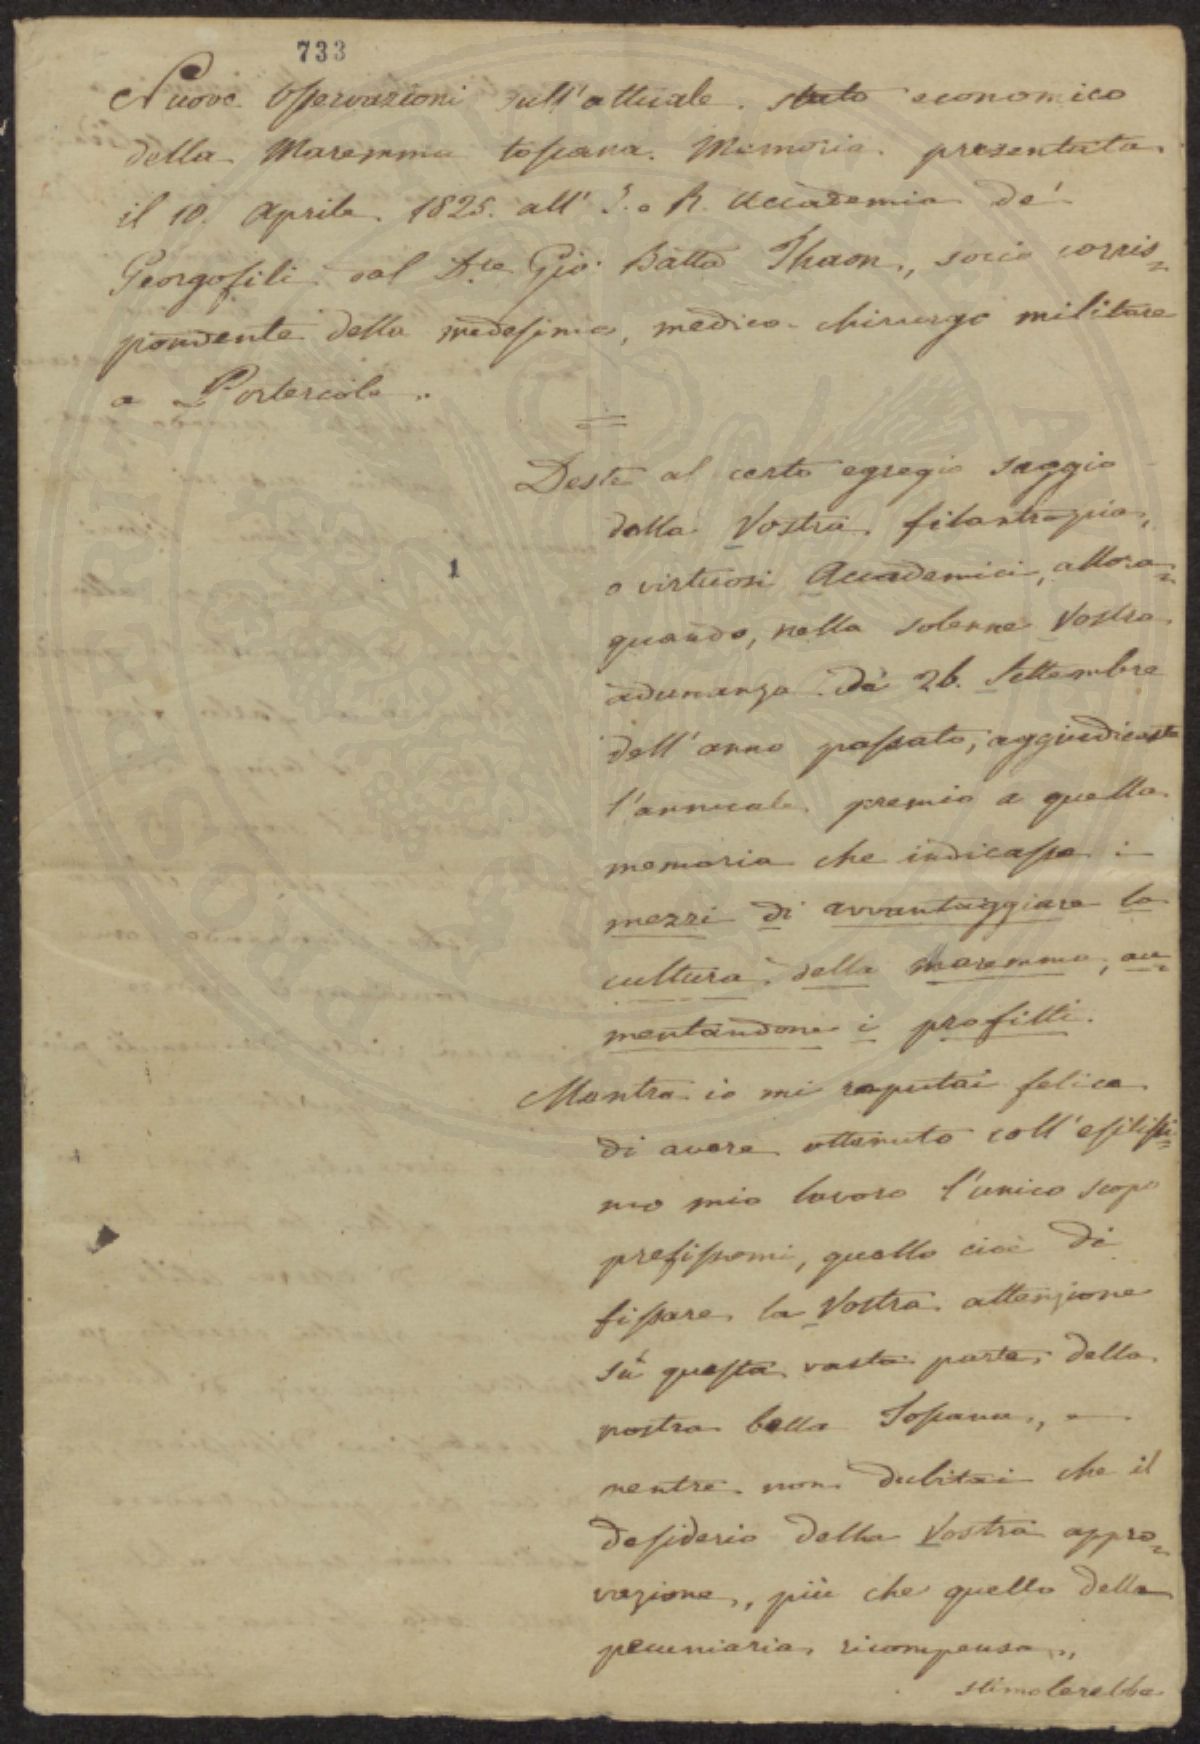 733
Nuove Osservazioni sull'attuale stato economico
della Maremma toscana. Memoria presentata
il 10. Aprile 1825. all' I. e R. Accademia de'
Georgofili dal D.re Gio: Batta Thaon, socio corris=
pondente della medesima, medico-chirurgo militare
a Portercole.
Deste al certo egregio saggio
della Vostra filantropia,
o virtuosi Accademici, allora=
quando, nella solenne Vostra
adunanza de' 26. Settembre
dell'anno passato, aggiudicaste
l'annuale premio a quella
memoria che indicasse i
mezzi di avvantaggiare la
cultura della maremma, au=
mentandone i profitti.
Mentre io mi reputai felice
di avere ottenuto coll'esilissi=
mo mio lavoro l'unico scopo
prefissomi, quello cioè di
fissare la Vostra attenzione
sù questa vasta parte della
nostra bella Toscana, e
mentre non dubitai che il
desiderio della Vostra appro=
vazione, più che quello della
pecuniaria ricompensa,
stimolerebbe
1